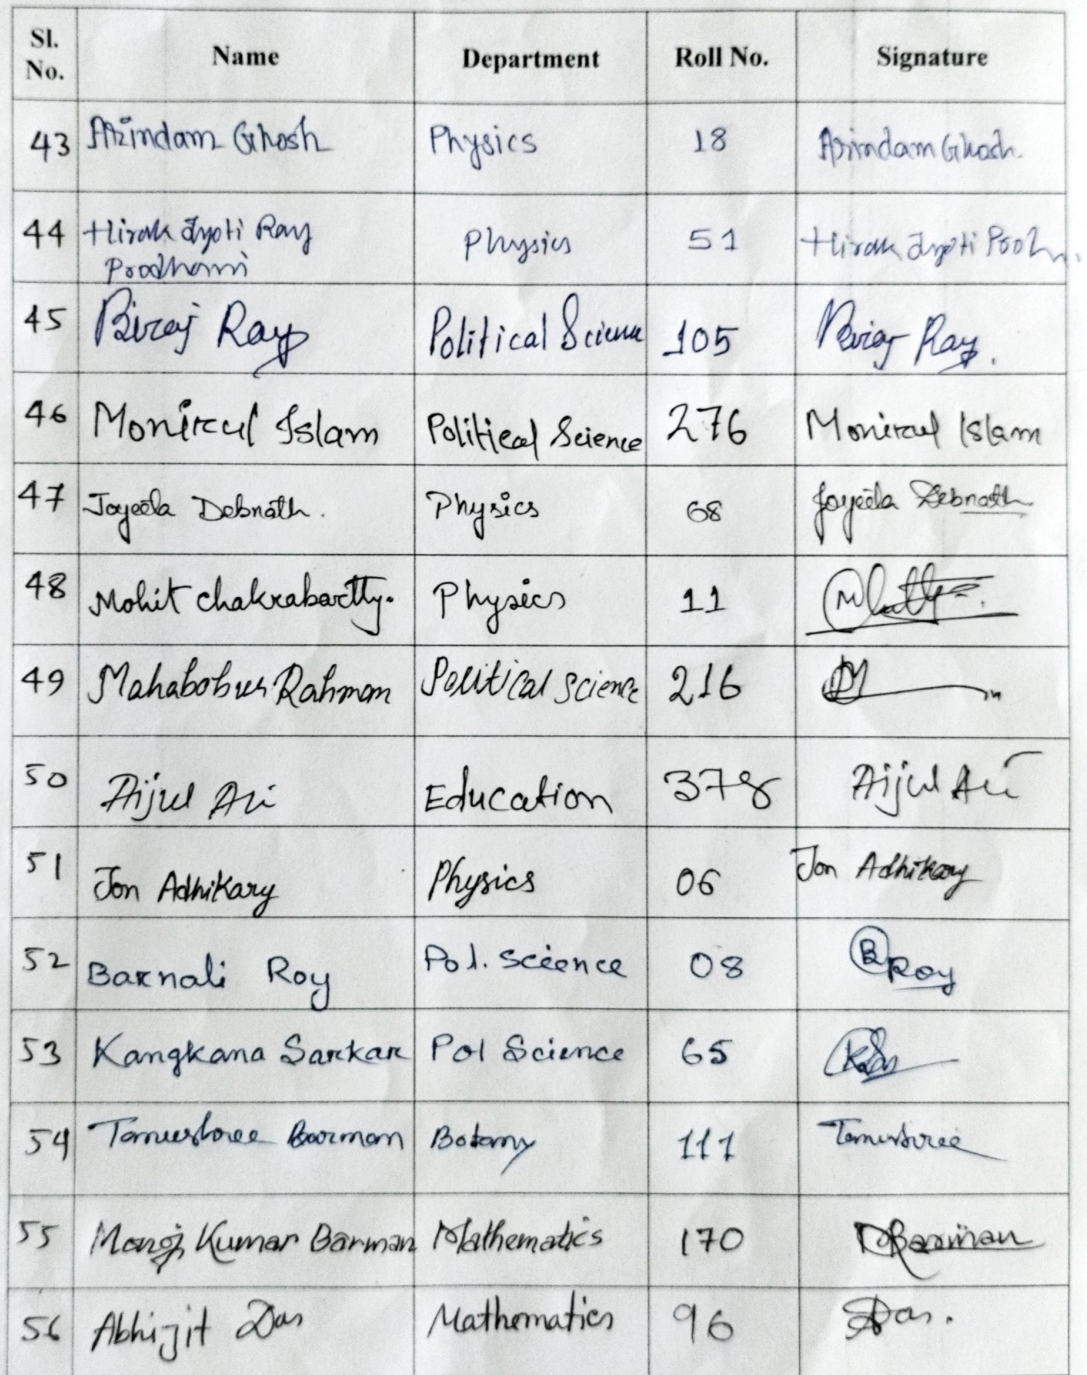 Sl. No. Name Department Roll No. Signature
43 Arindam Ghosh Physics 18 Arindam Ghosh.
44 Hirak Jyoti Ray Prodhani Physics 51 Hirak Jyoti
45 Biraj Ray Political Science 105 Biraj Ray.
46 Monirul Islam Political Science 276 Monirul Islam
47 Joyeeta Debnath. Physics 68 Joyeeta Debnath
48 Mohit chakrabartty. Physics 11
49 Mahabobur Rahman Political science 216
50 Aijul Ali Education 378 Aijul Ali
51 Jon Adhikary Physics 06 Jon Adhikary
52 Barnali Roy Pol. science 08 B Roy
53 Kangkana Sarkar Pol Science 65
54 Tanushree Barman Botany 111 Tanushree
55 Manoj Kumar Barman Mathematics 170 Barman
56 Abhijit Das Mathematics 96 Das.